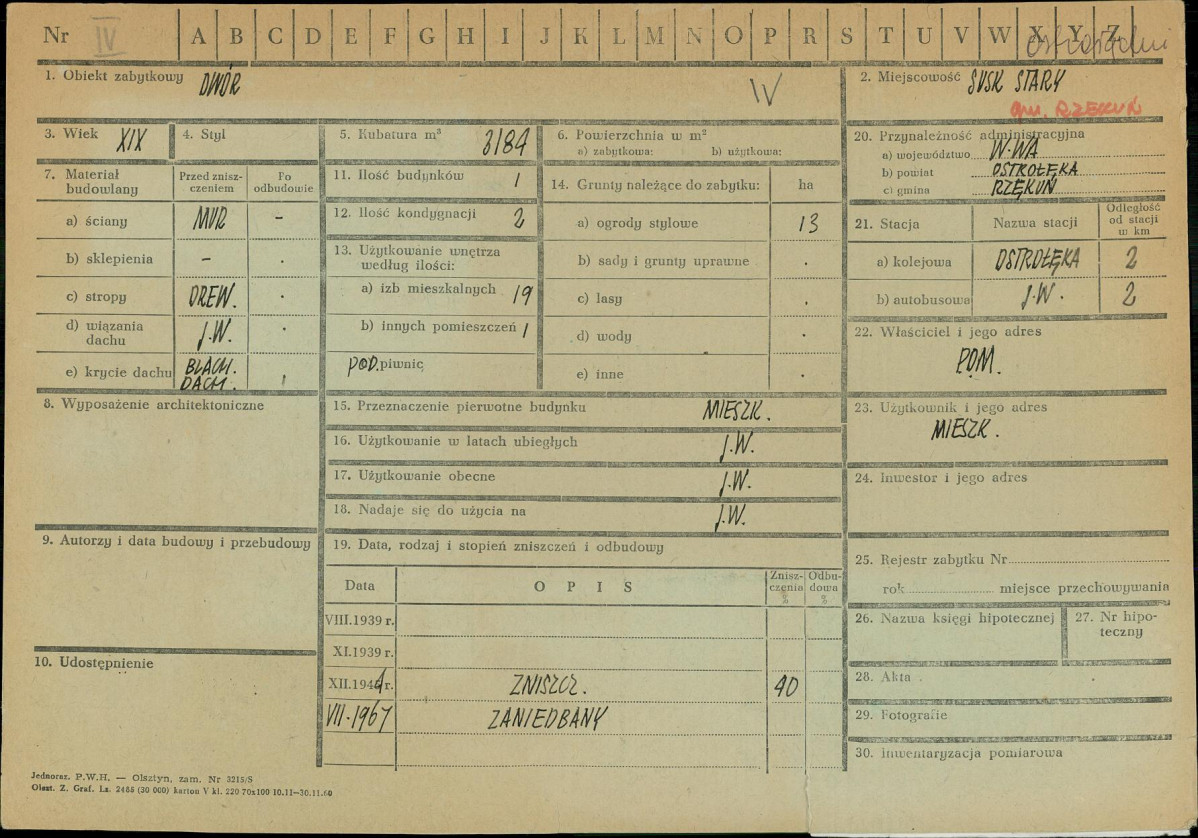 Nr IV A B C D E F G H I J K L M N O P R S T U V W X Y Z
1. Obiekt zabytkowy DWÓR
IV
2. Miejscowość SUSK STARY
gm. RZEKUŃ
3. Wiek XIX
4. Styl
5. Kubatura m³ 3184
6. Powierzchnia w m²
a) zabytkowa: b) użytkowa:
7. Materiał budowlany
Przed zniszczeniem
Po odbudowie
a) ściany MUR –
b) sklepienia –
c) stropy DREW.
d) wiązania dachu J.W.
e) krycie dachu BLACH. DACH.
8. Wyposażenie architektoniczne
9. Autorzy i data budowy i przebudowy
10. Udostępnienie
11. Ilość budynków 1
12. Ilość kondygnacji 2
13. Użytkowanie wnętrza
według ilości:
a) izb mieszkalnych 19
b) innych pomieszczeń 1
POD.piwnic
14. Grunty należące do zabytku: ha
a) ogrody stylowe 13
b) sady i grunty uprawne
c) lasy
d) wody
e) inne
15. Przeznaczenie pierwotne budynku MIESZK.
16. Użytkowanie w latach ubiegłych J.W.
17. Użytkowanie obecne J.W.
18. Nadaje się do użycia na J.W.
19. Data, rodzaj i stopień zniszczeń i odbudowy
Data OPIS Zniszczenia % Odbudowa %
VIII.1939 r.
XI.1939 r.
XII.1944 r. ZNISZCZ. 40
VII-1967 ZANIEDBANY
20. Przynależność administracyjna
a) województwo W-WA
b) powiat OSTROŁĘKA
c) gmina RZĘKUŃ
21. Stacja Nazwa stacji Odległość od stacji w km
a) kolejowa OSTROŁĘKA 2
b) autobusowa J.W. 2
22. Właściciel i jego adres
POM.
23. Użytkownik i jego adres
MIESZK.
24. Inwestor i jego adres
25. Rejestr zabytku Nr
rok miejsce przechowywania
26. Nazwa księgi hipotecznej
27. Nr hipoteczny
28. Akta
29. Fotografie
30. Inwentaryzacja pomiarowa
Jednoraz. P.W.H. — Olsztyn, zam. Nr 3215/S
Olszt. Z. Graf. Lz. 2485 (30 000) karton V kl. 220 70x100 10.11—30.11.60